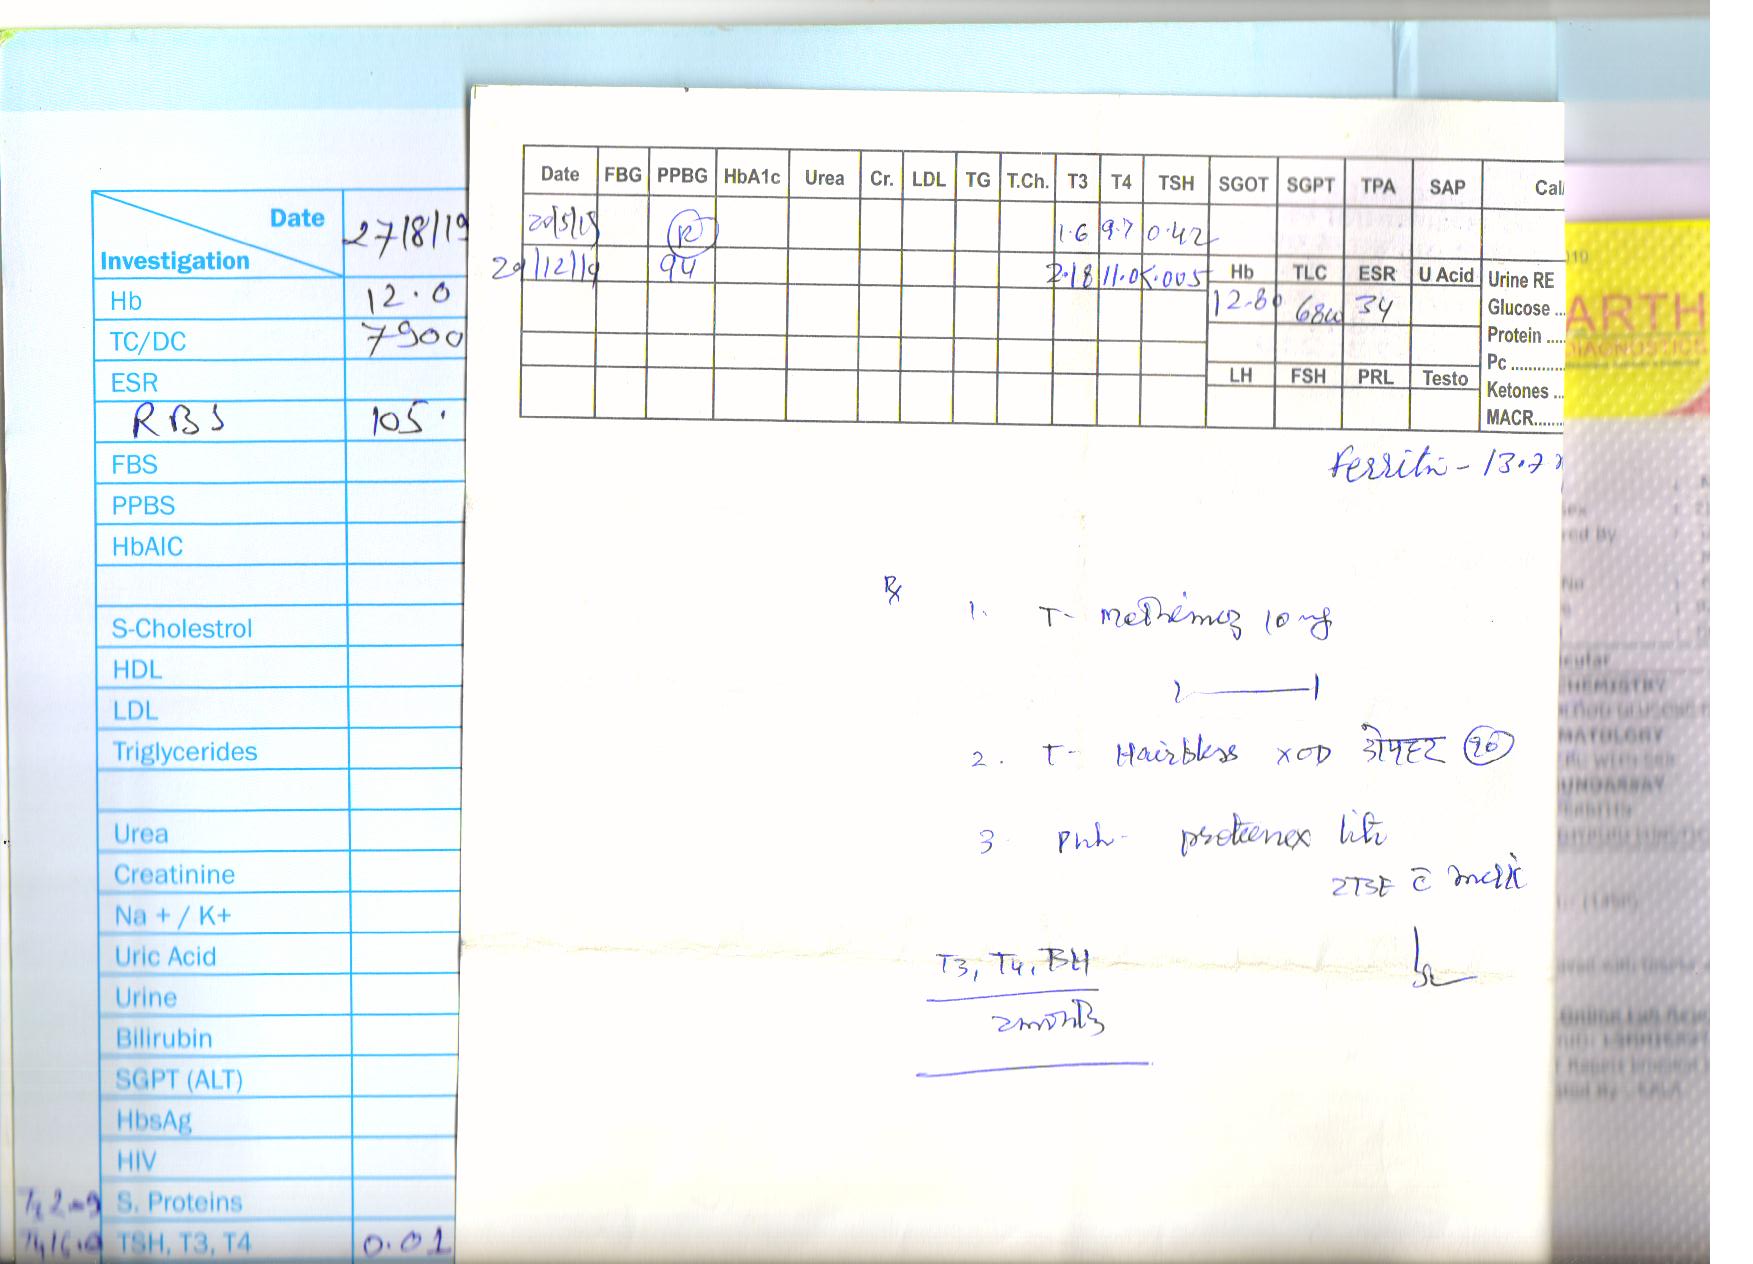 Date 27/8/19
Investigation
Hb 12.0
TC/DC 7900
ESR
RBS 105.
FBS
PPBS
HbAIC
S-Cholestrol
HDL
LDL
Triglycerides
Urea
Creatinine
Na + / K+
Uric Acid
Urine
Bilirubin
SGPT (ALT)
HbsAg
HIV
S. Proteins
TSH, T3, T4 0.01
Date FBG PPBG HbA1c Urea Cr. LDL TG T.Ch. T3 T4 TSH SGOT SGPT TPA SAP Cal
R 1.6 9.7 0.42
94 2.18 11.0 .005
Hb TLC ESR U Acid Urine RE
12.80 34 Glucose ...
Protein .....
LH FSH PRL Testo Pc ............
Ketones ...
MACR.......
Ferritin - 13.7
Rx
1. T- Methimez 10 mg
2 1
2. T- Hairbless x OD दोपहर
3 proteinex
2TSF c̄ milk
T3, T4,
2 months
ARTH
DIAGNOSTICS